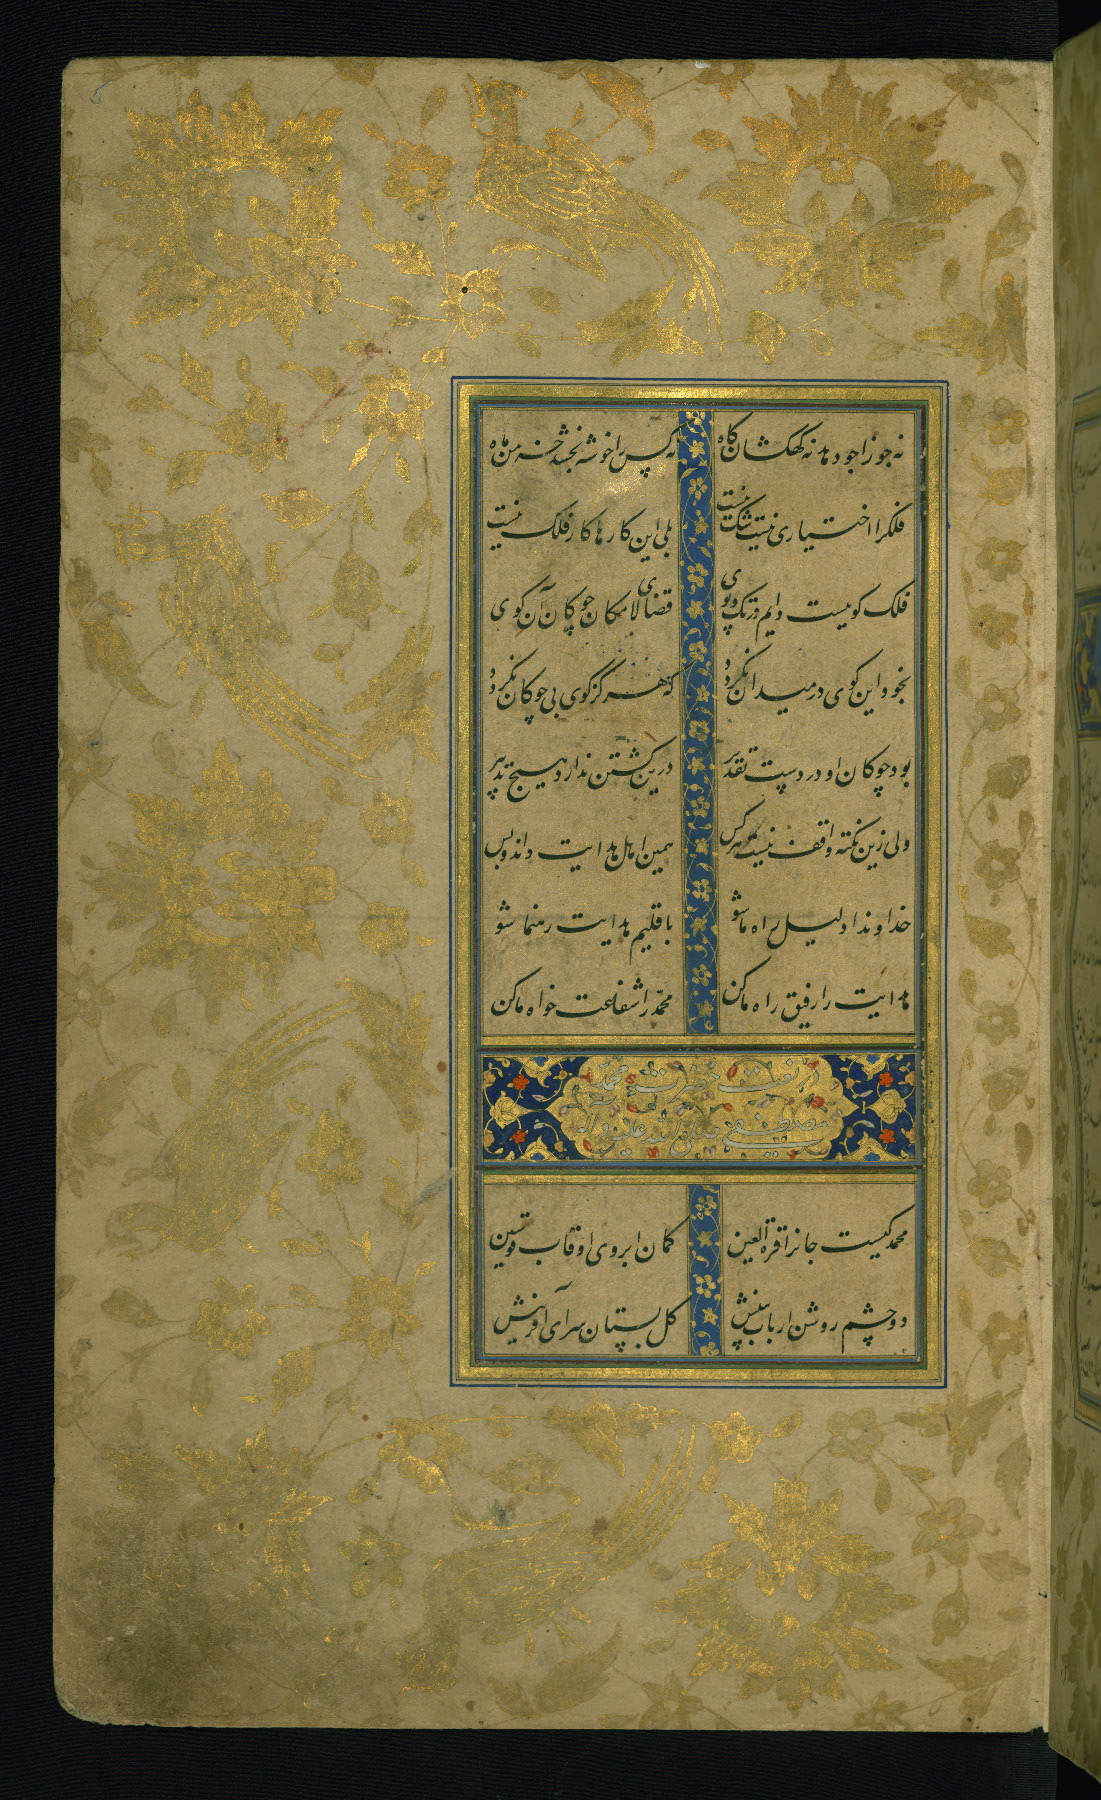 نه جوزا جو دهد نه کهکشان کاه نه کس را خوشه بخشد خرمن ماه
فلک را اختیاری نیست شک نیست بلی این کارها کار فلک نیست
فلک گوییست دایم در تک و پوی قضای لامکان چوکان آن کوی
بخود این کوی در میدان نکردد که هرگز کوی بی چوکان نکردد
بود چوکان او در دست تقدیر درین کشتن ندارد هیچ تدبیر
ولی زین نکته واقف نیست هر کس همین اهل هدایت داند و بس
خداوندا دلیل راه ما شو باقلیم هدایت رهنما شو
هدایت را رفیق راه ما کن محمد را شفاعت خواه ما کن
در نعت حضرت محمد
مصطفی صلی الله علیه و آله
محمد کیست جانرا قرة العین کمان ابروی او قاب قوسین
دو چشم روشن ارباب بینش کل بستان سرای آفرینش